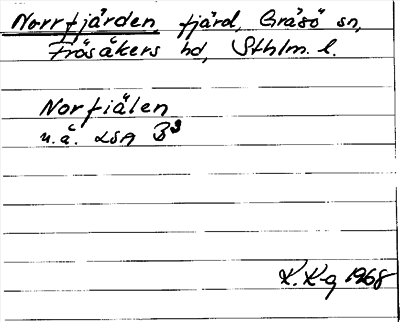 Norrfjärden fjärd, Gräsö sn,
Frösåkers hd, Sthlm. l.
Norfiälen
u.å. LSA B3
K. K-g 1968